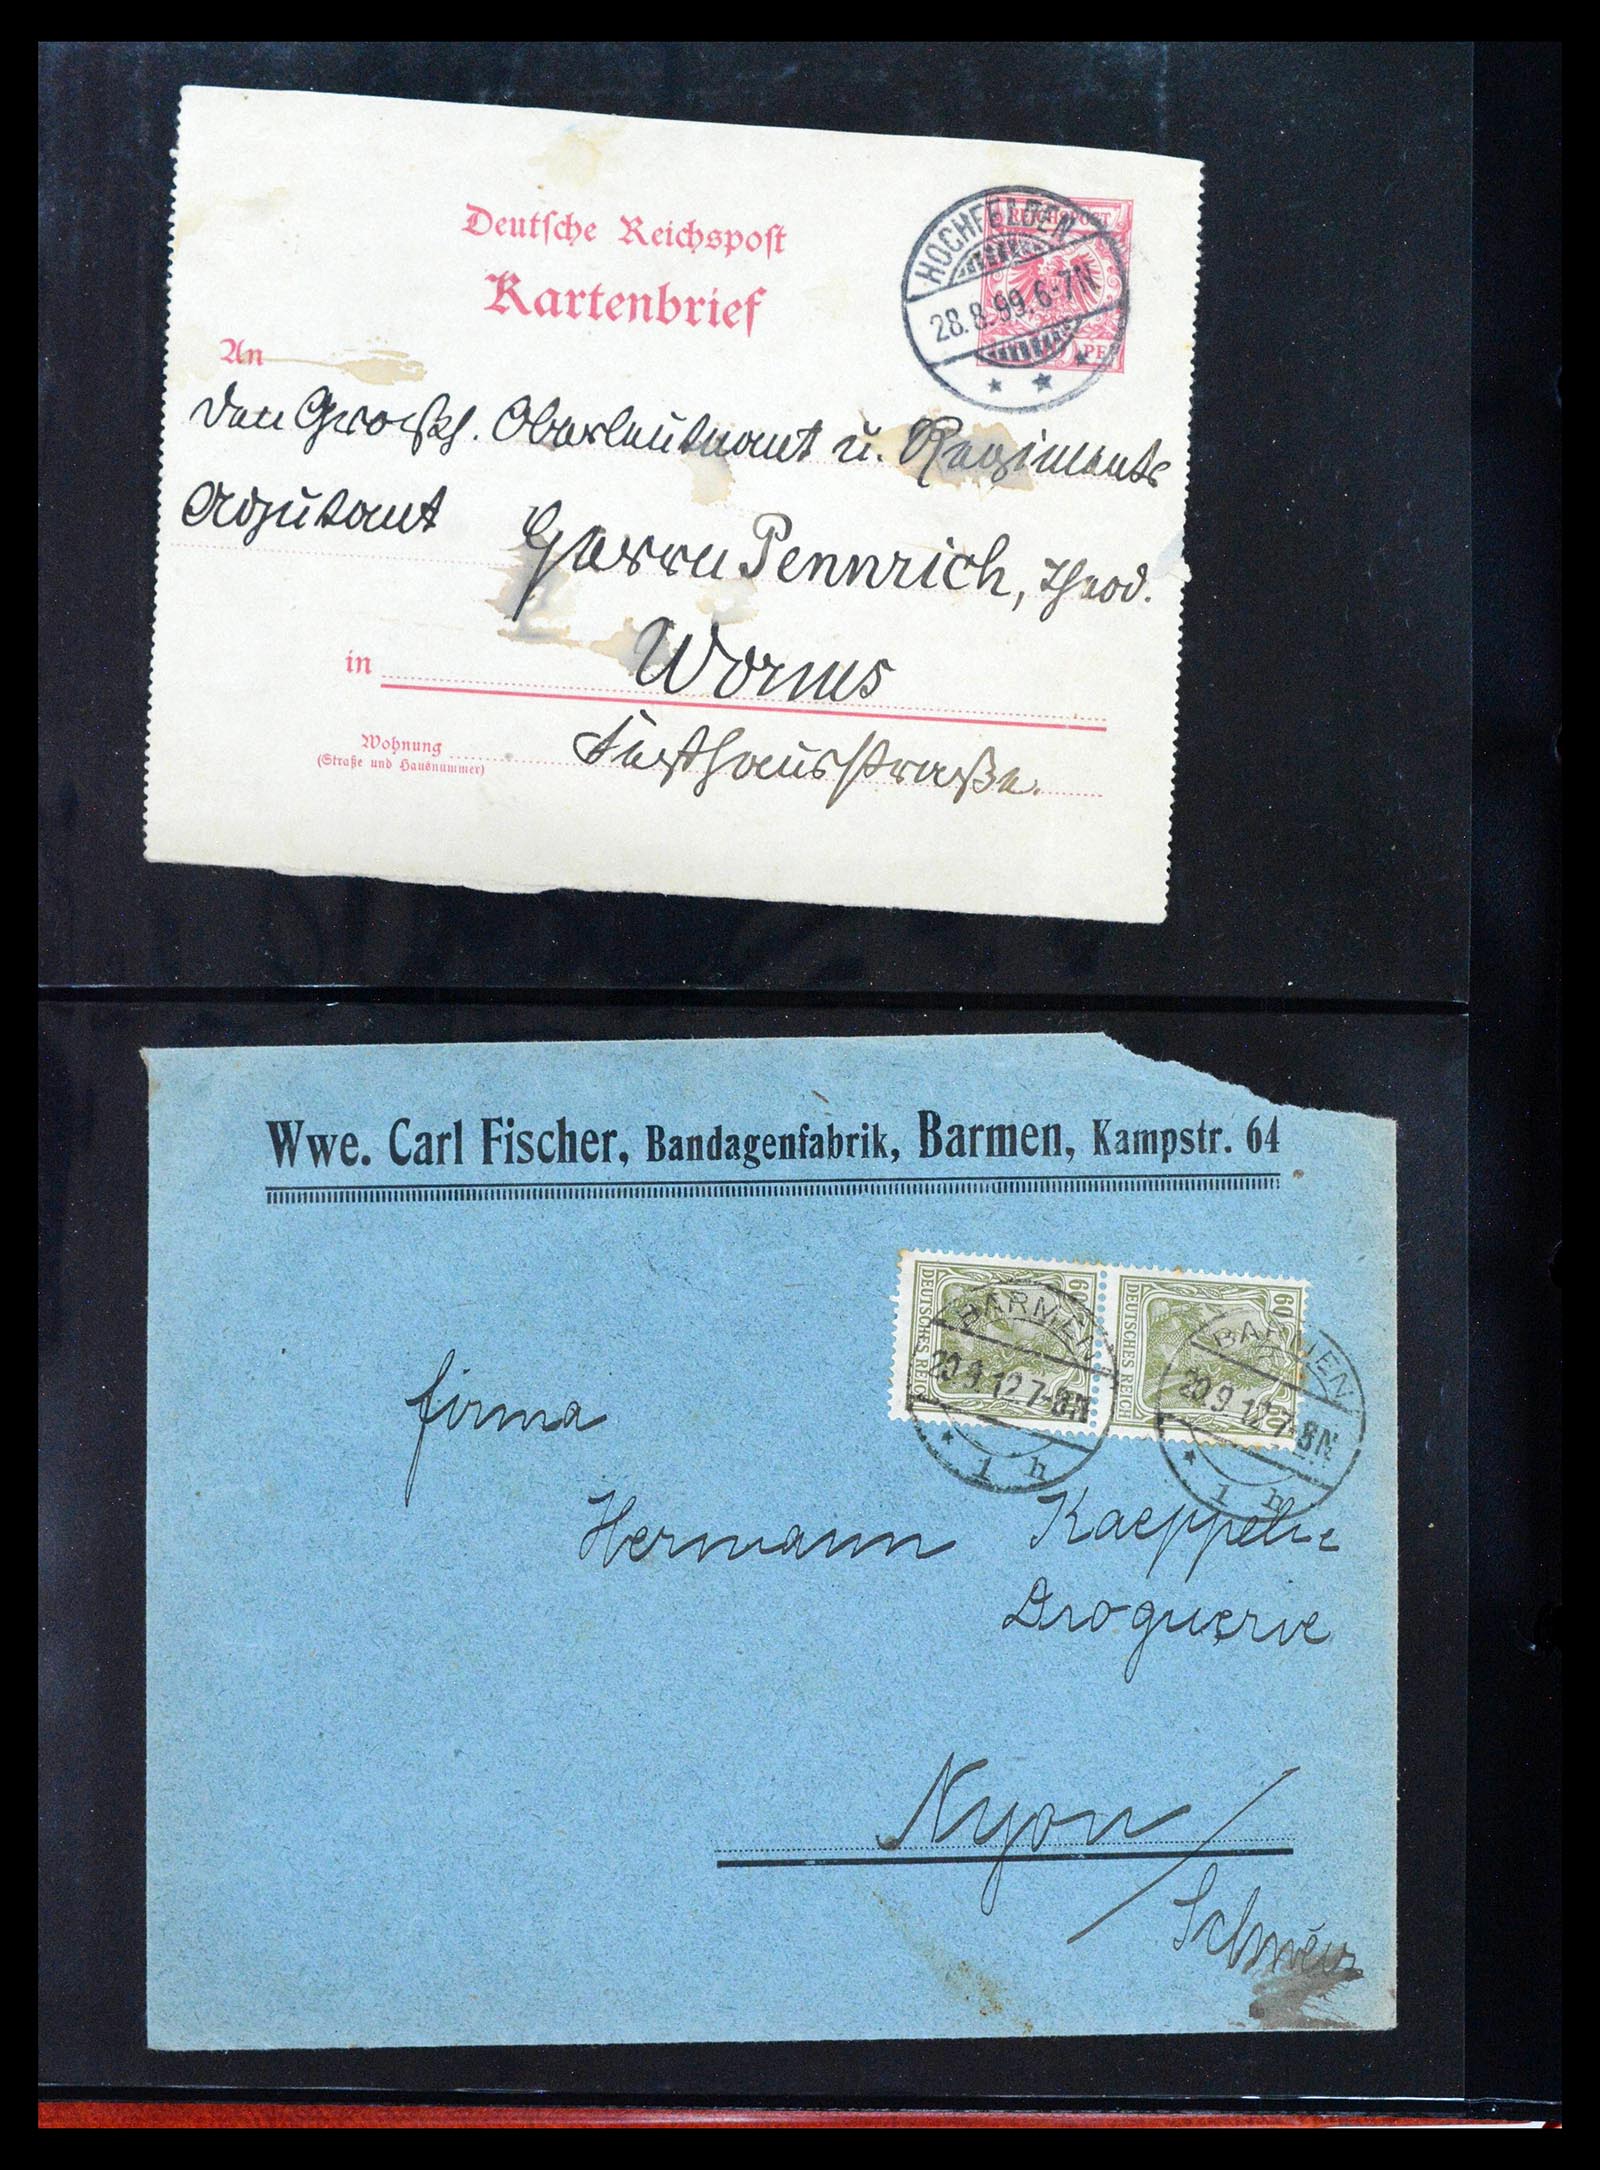 Deutsche Reichspost
Kartenbrief
REICHSPOST
PF
HOCHFELDEN
28.8.99.6-7N
An
den Großh. Oberleutnant u. Regiments
Adjutant Herrn Pennrich, Theod.
in Worms
Wohnung
(Straße und Hausnummer)
Wwe. Carl Fischer, Bandagenfabrik, Barmen, Kampstr. 64
60 60
DEUTSCHES REICH DEUTSCHES REICH
BARMEN BARMEN
20.9.12 7-8N 20.9.12 7-8N
* 1 h * 1 h
firma
Hermann
Droguerie
Nyon
Schweiz